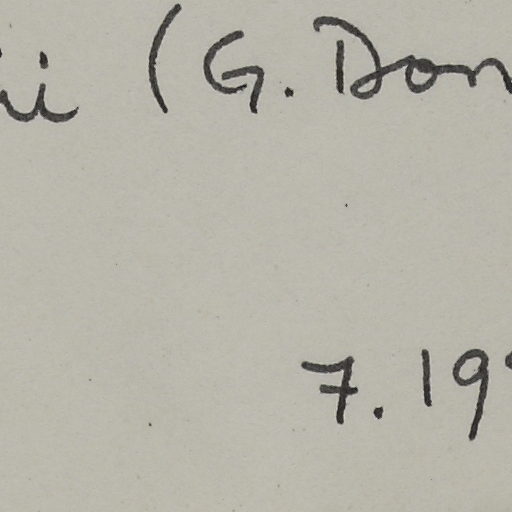 ii (G. Don
7.19